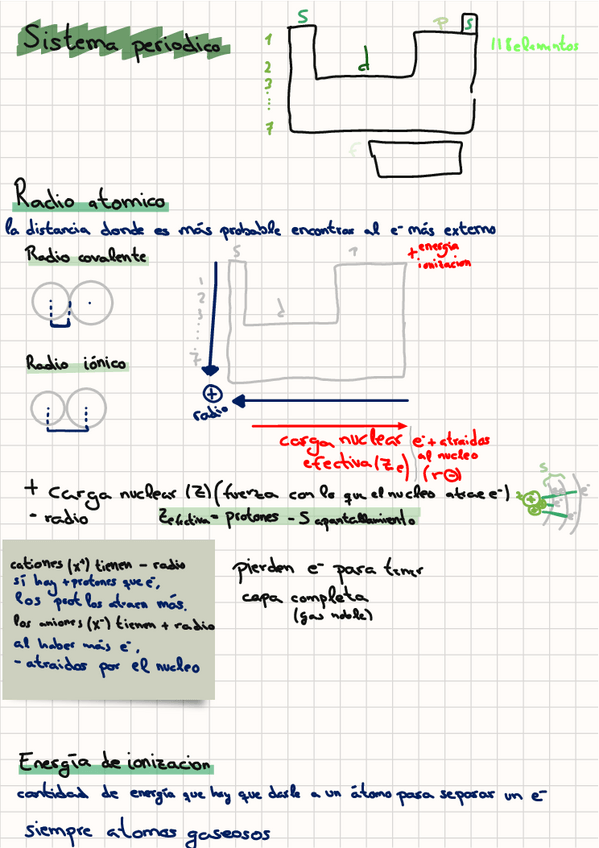 Sistema periodico
S
P
S
d
f
1
2
3
7
118 elementos
Radio atomico
la distancia donde es más probable encontrar al e- más externo
Radio covalente
S
d
1
2
3
7
+ energía
ionizacion
Radio iónico
+
radio
carga nuclear
efectiva (Ze)
e- + atraidos
al nucleo
+ carga nuclear (Z) (fuerza con la que el nucleo atrae e-)
- radio
Zefectiva = Protones - S apantallamiento
S
cationes (x+) tienen - radio
sí hay + protones que e-,
los prot los atraen más.
los aniones (x-) tienen + radio
al haber más e-,
- atraidos por el nucleo
pierden e- para tener
capa completa
(gas noble)
Energía de ionizacion
cantidad de energía que hay que darle a un átomo para separar un e-
siempre atomos gaseosos